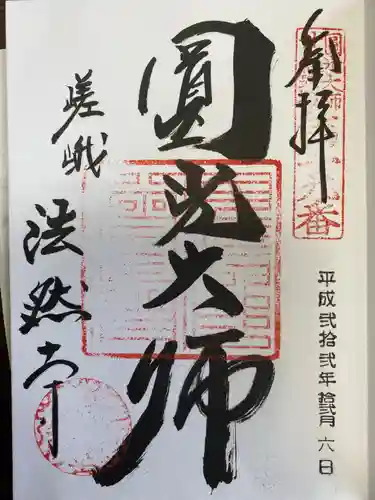 奉拝
平成弐拾弐年拾弐月六日
圓光大師
嵯峨
法然寺